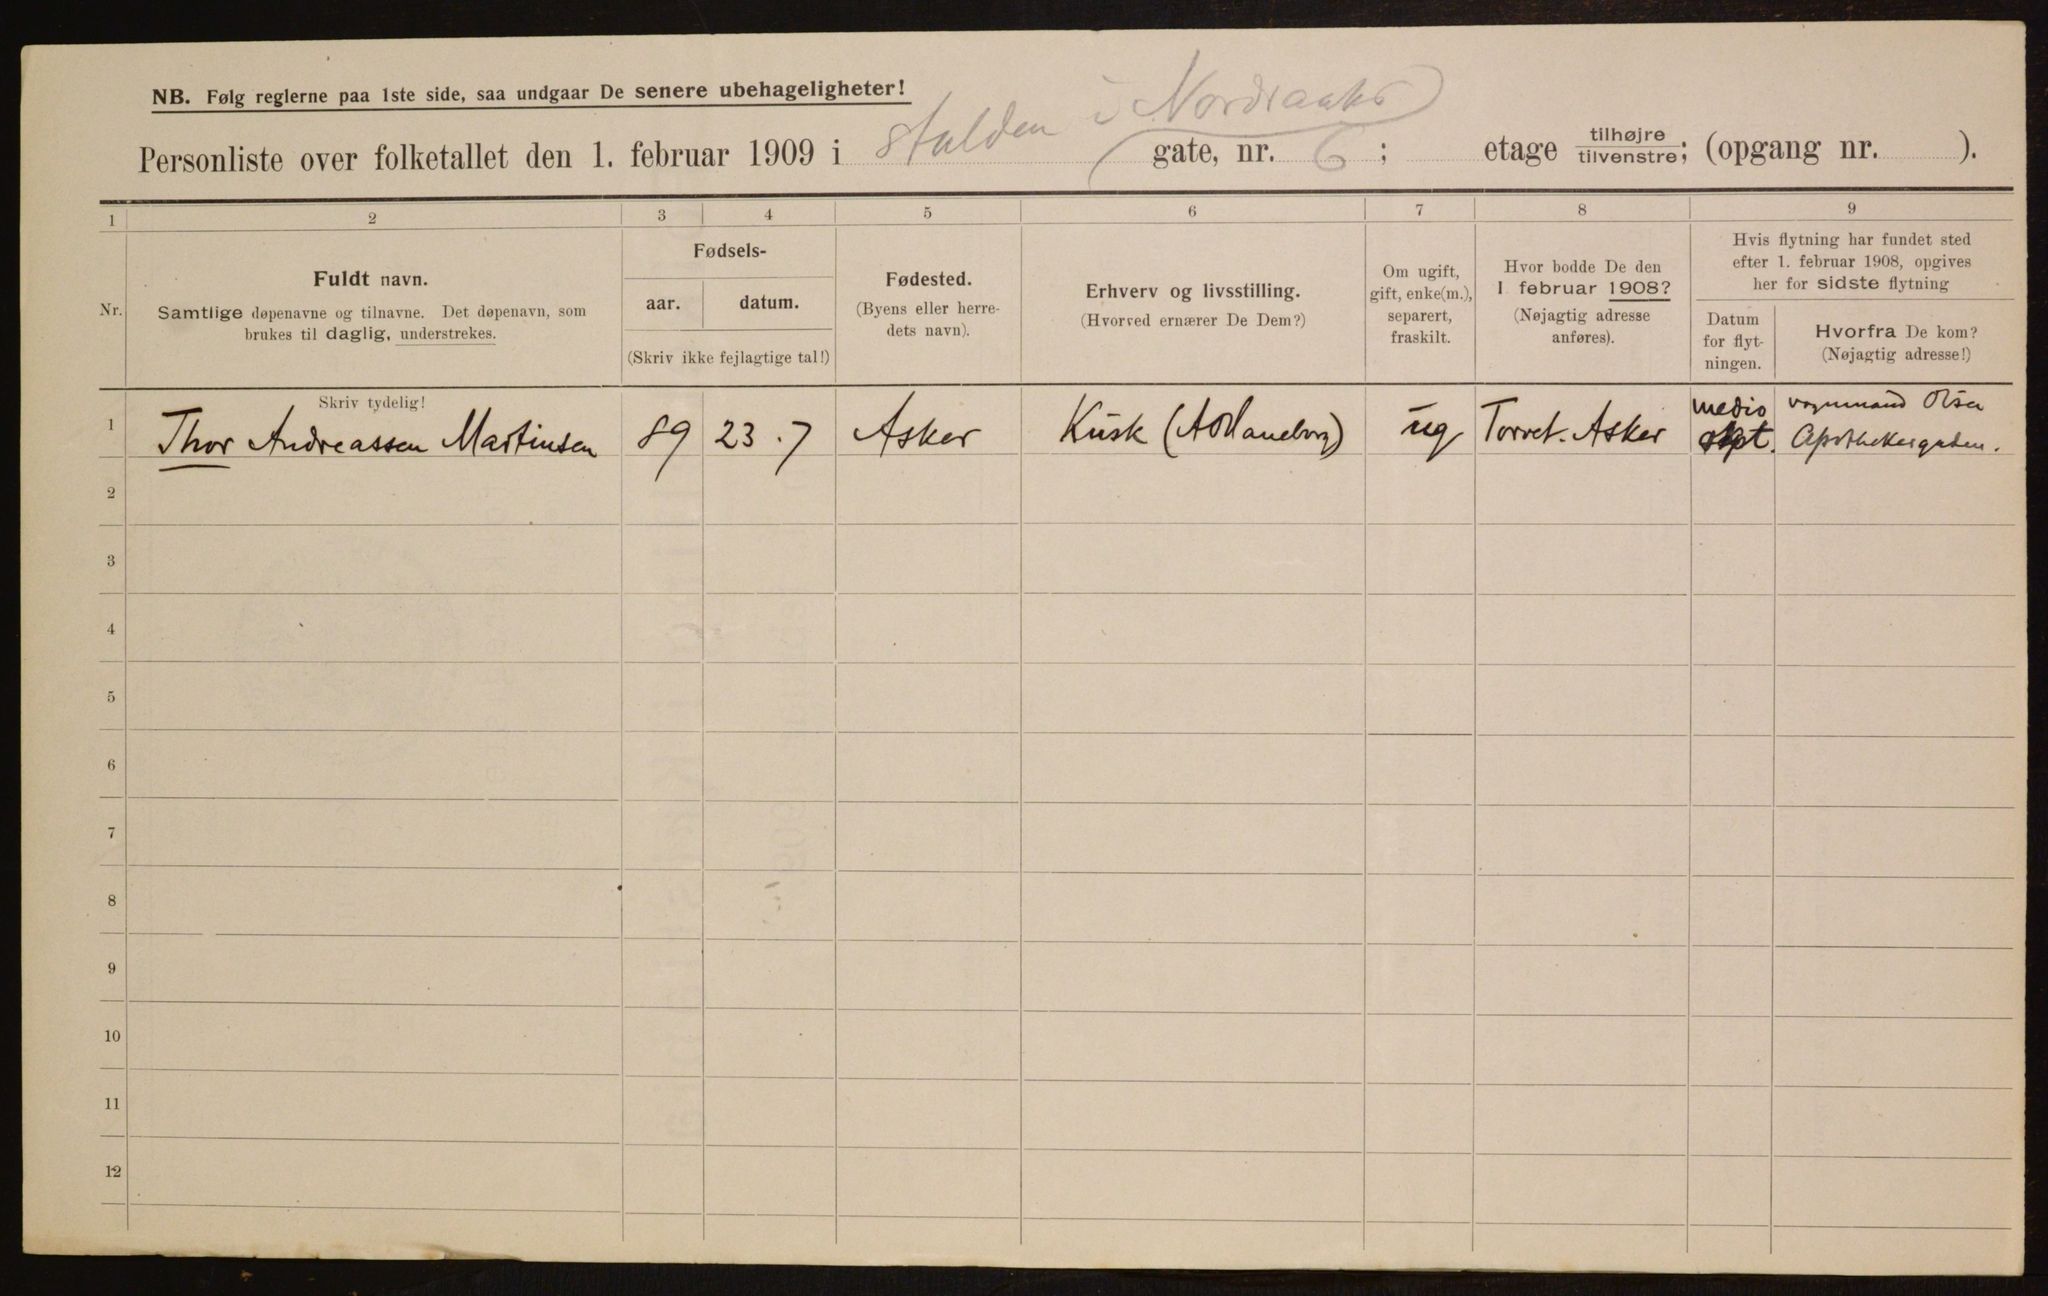 NB. Følg reglerne paa 1ste side, saa undgaar De senere ubehageligheter!
Personliste over folketallet den 1. februar 1909 i Stalden i Nordraaks gate, nr. 6 ; etage tilhøjre tilvenstre; (opgang nr. ).
1 2 3 4 5 6 7 8 9
Nr.
Fuldt navn.
Samtlige døpenavne og tilnavne. Det døpenavn, som
brukes til daglig, understrekes.
Fødsels-
aar. datum.
(Skriv ikke fejlagtige tal!)
Fødested.
(Byens eller herre-
dets navn).
Erhverv og livsstilling.
(Hvorved ernærer De Dem?)
Om ugift,
gift, enke(m.),
separert,
fraskilt.
Hvor bodde De den
1. februar 1908?
(Nøjagtig adresse
anføres).
Hvis flytning har fundet sted
efter 1. februar 1908, opgives
her for sidste flytning
Datum
for flyt-
ningen.
Hvorfra De kom?
(Nøjagtig adresse!)
Skriv tydelig!
1 Thor Andreassen Martinsen 89 23.7 Asker Kusk ug Torvet. Asker medio sept. vognmand Olsen
Apothekergaden.
2
3
4
5
6
7
8
9
10
11
12